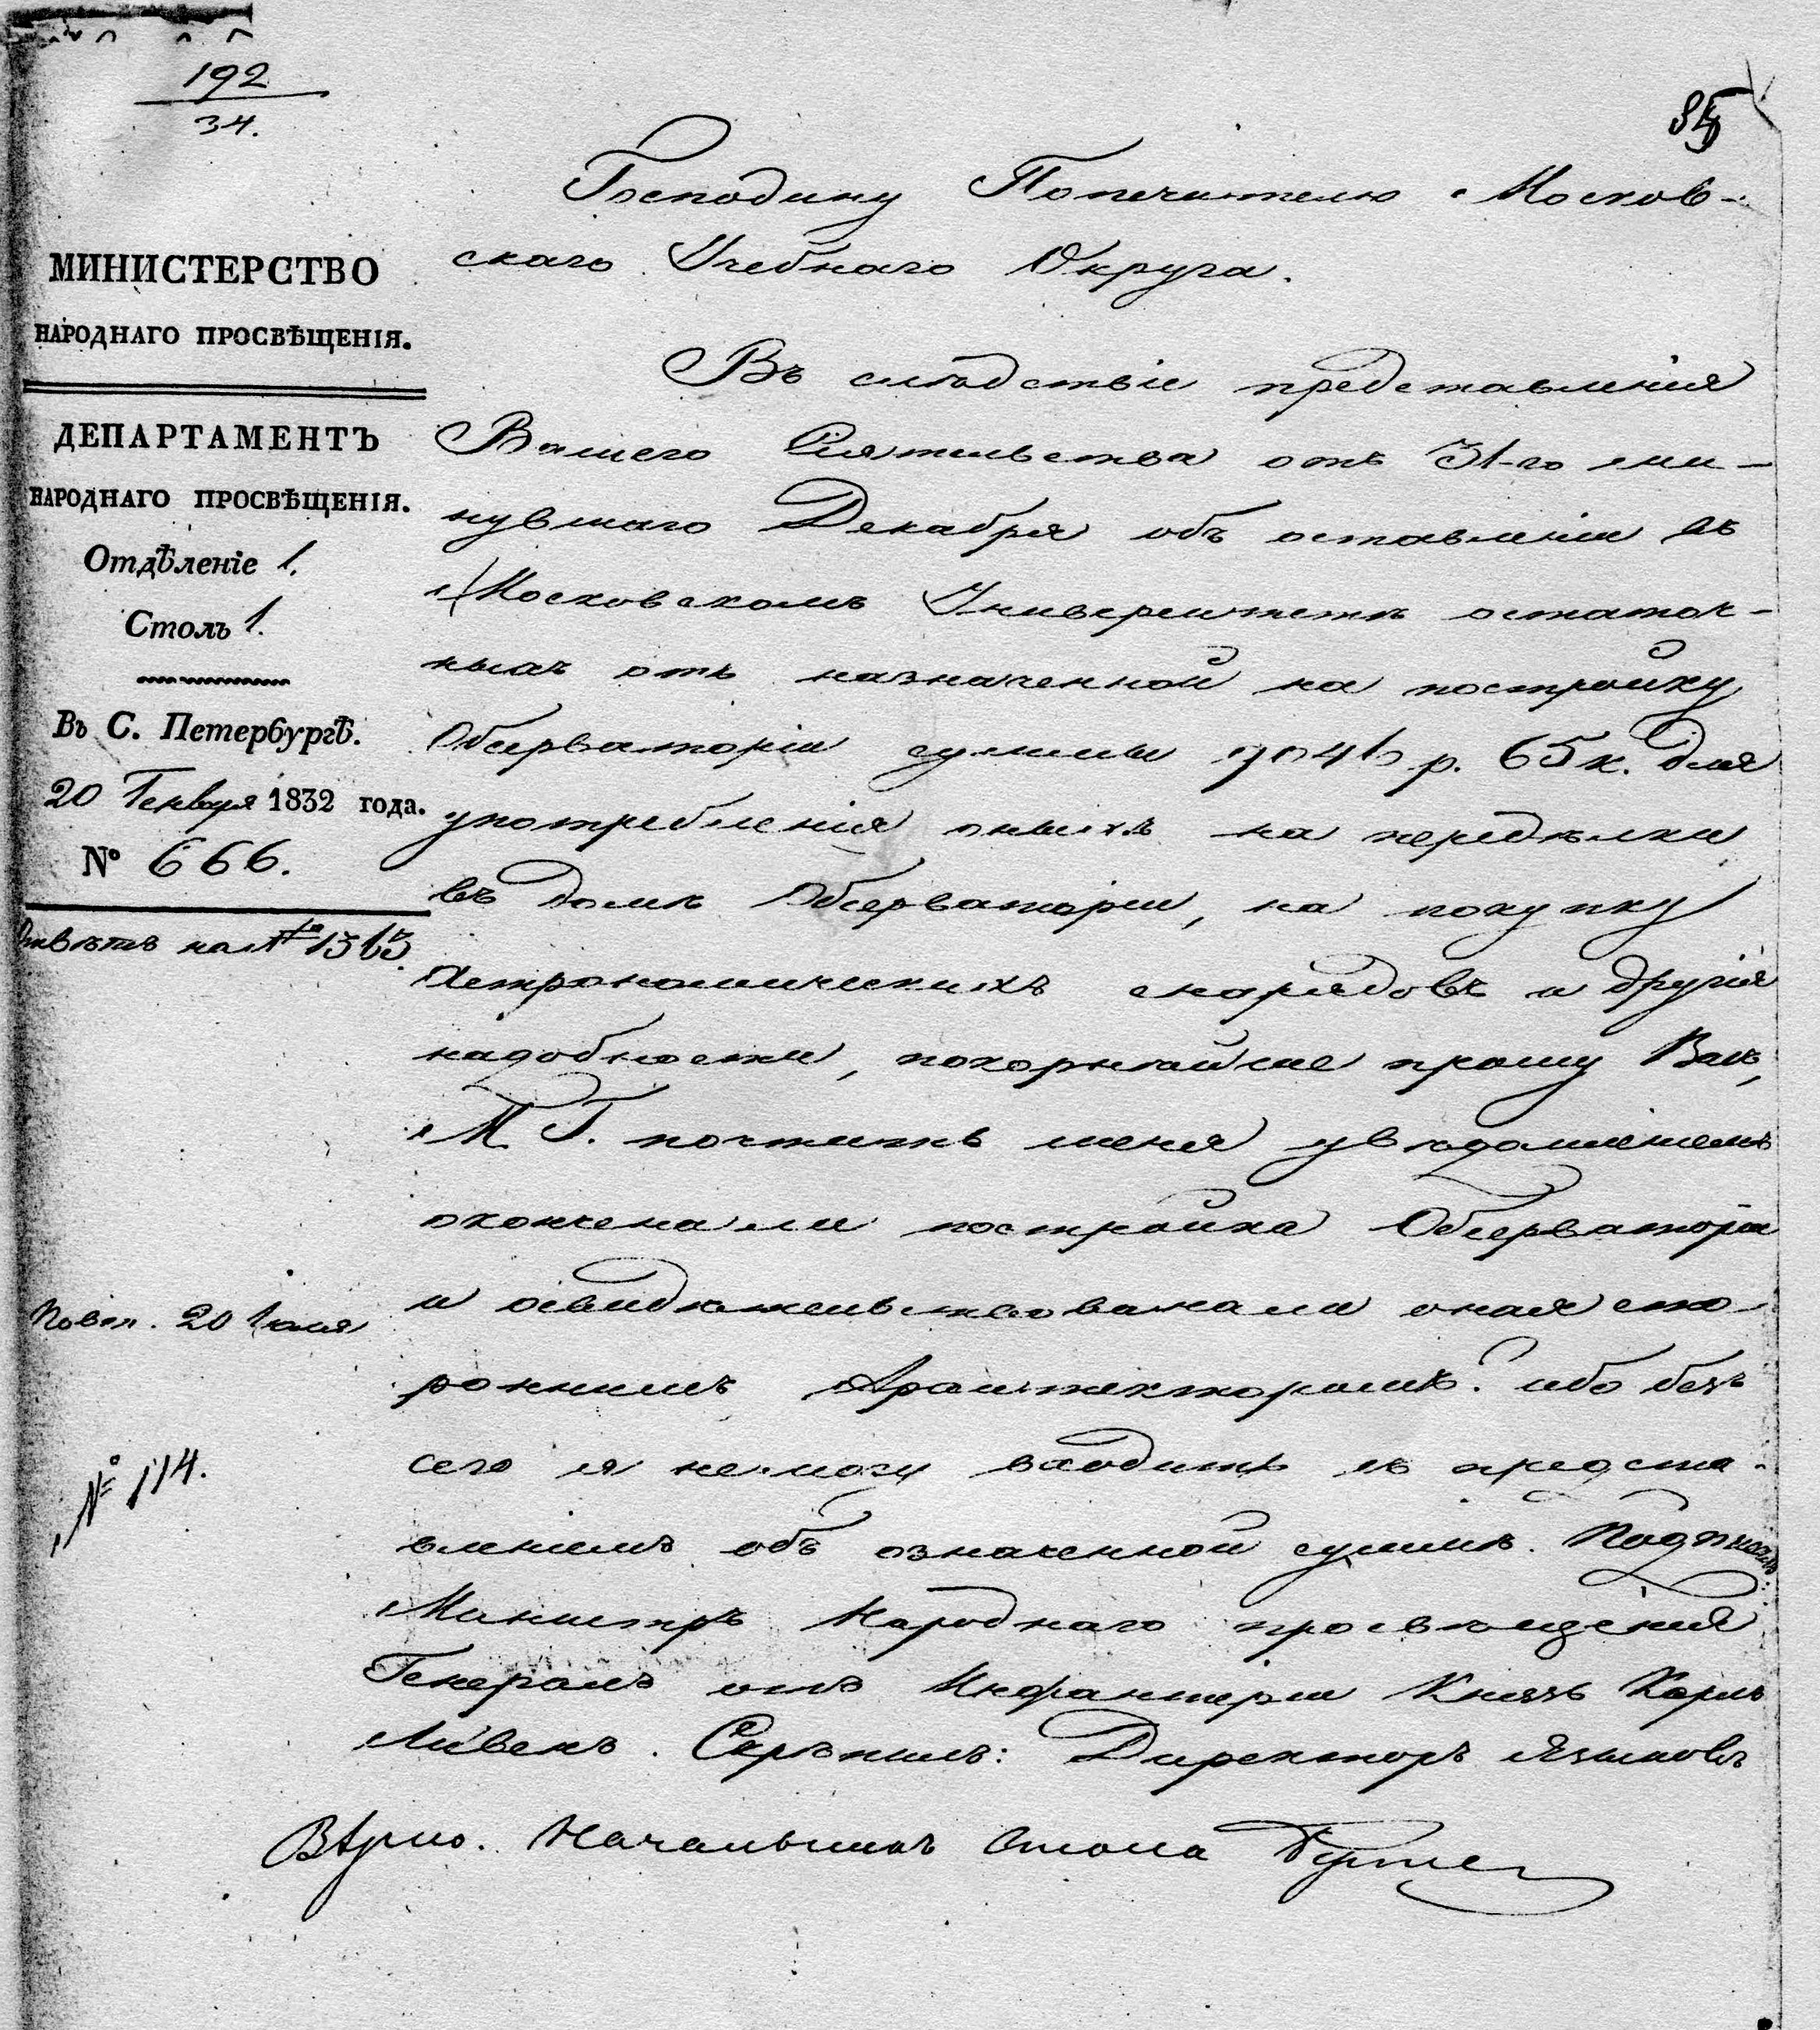 192
34.
85
МИНИСТЕРСТВО
НАРОДНАГО ПРОСВѢЩЕНІЯ.
ДЕПАРТАМЕНТЪ
НАРОДНАГО ПРОСВѢЩЕНІЯ.
Отдѣленіе 1.
Столъ 1.
Въ С. Петербургѣ.
20 Генваря 1832 года.
№ 666.
Отвѣтъ на №
20 Іюля
№ 114.
Господину Попечителю Москов-
скаго Учебнаго Округа.
Въ слѣдствіе представленія
Вашего Сіятельства отъ 31-го ми-
нувшаго Декабря объ оставленіи въ
Московскомъ Университетѣ остаточ-
ныхъ отъ назначенной на постройку
Обсерваторіи суммы р. 65 к. для
употребленія оныхъ на передѣлки
въ домѣ Обсерваторіи, на покупку
Астрономическихъ снарядовъ и другія
надобности, покорнѣйше прошу Васъ,
М. Г. почтить меня увѣдомленіемъ
окончена ли постройка Обсерваторіи
и освидѣтельствована ли оная сто-
роннимъ Архитекторомъ? ибо безъ
сего я не могу входить съ предста-
вленіемъ объ означенной суммѣ. Подписалъ:
Министръ Народнаго просвѣщенія
Генералъ отъ Инфантеріи Князь Карлъ
Ливенъ. Скрѣпилъ: Директоръ Языковъ
Вѣрно. Начальникъ Стола